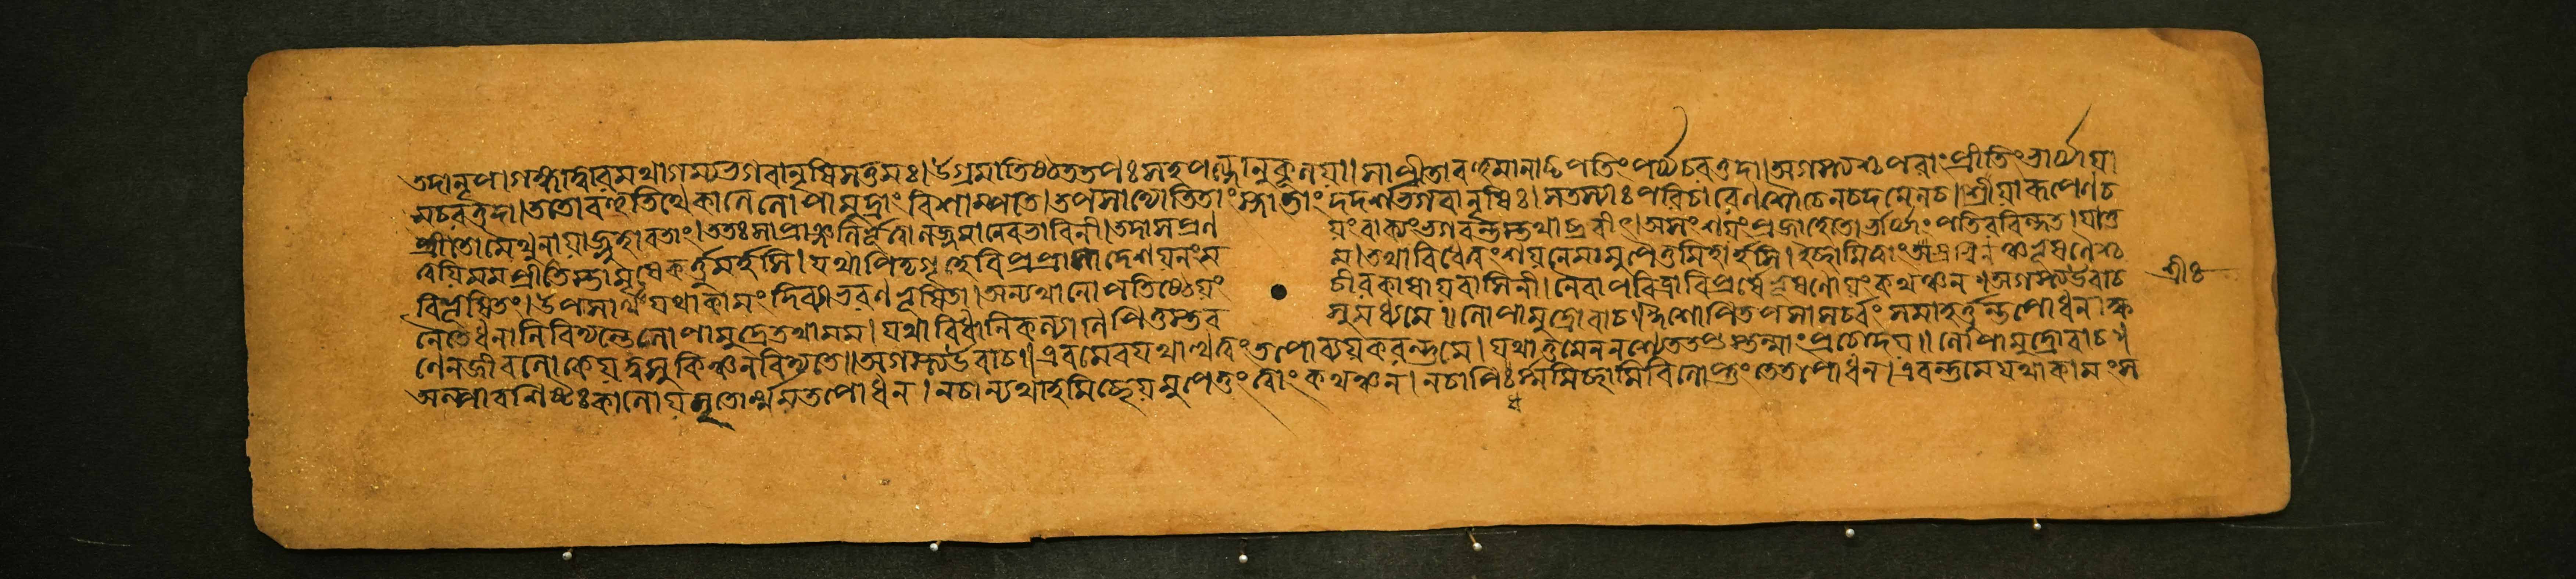 তদানৃপ।গঙ্গাদ্বাৰমথাগম্যভগবানৃষিসত্তমঃ।উগ্ৰমাতিষ্ঠততপঃসহপত্ন্যানুকূলয়া।সাপ্ৰীতাবহুমানাচ্চপতিংপৰ্য্যচৰত্তদা।অগস্ত্যশ্চপৰাংপ্ৰীতিংভাৰ্য্যায়া
মচৰত্তদা।ততোবহুতিথেকালেলোপামুদ্ৰাংবিশাম্পতে।তপসাদ্যোতিতাংস্নাতাংদদৰ্শভগবানৃষিঃ।সতস্যাঃপৰিচাৰেণশৌচেনচদমেনচ।শ্ৰীয়াৰূপেণচ
প্ৰীতোমৈথুনায়াজুহাবতাং।ততঃসাপ্ৰাঞ্জলিৰ্ভূত্বালজ্জমানেবভাবিনী।তদাসপ্ৰণ য়ংবাক্যংভগবন্তমথাব্ৰবীৎ।অসংশয়ংপ্ৰজাহেতোৰ্ভাৰ্য্যাংপতিৰবিন্দত।যাতু
ত্বয়িমমপ্ৰীতিস্তামৃষেকৰ্ত্তুমৰ্হসি।যথাপিতৃগৃহেবিপ্ৰপ্ৰাসাদেশয়নংম ম।তথাবিধেত্বংশয়নেমামুপৈতুমিহাৰ্হসি।ইচ্ছামিত্বাংস্ৰগ্বিনঞ্চভূষণৈশ্চ
বিভূষিতং।উপসৰ্ত্তুংযথাকামংদিব্যাভৰণভূষিতা।অন্যথানোপতিষ্ঠেয়ং চীৰকাষায়বাসিনী।নৈবাপবিত্ৰাবিপ্ৰৰ্ষেভূষণোয়ংকথঞ্চন।অগস্ত্যউবাচ
নৈতেধনানিবিদ্যন্তেলোপামুদ্ৰেতথামম।যথাবিধানিকল্যাণিপিতুস্তব সুমধ্যমে॥লোপামুদ্ৰোবাচ।ঈশোসিতপসাসৰ্ব্বংসমাহৰ্ত্তুন্তপোধন।ক্ষ
ণেনজীবলোকেয়দ্বসুকিঞ্চনবিদ্যতে॥অগস্ত্যউবাচ॥এবমেবযথাত্থত্বংতপোব্যয়কৰন্তুমে।যথাতুমেননশ্যেততপস্তন্মাংপ্ৰচোদয়॥লোপামুদ্ৰোবাচ॥
অল্পাবশিষ্টঃকালোয়মৃতোৰ্ম্মমতপোধন।নচান্যথাহমিচ্ছেয়মুপেতুংত্বাংকথঞ্চন।নচাপিধৰ্ম্মমিচ্ছামিবিলোপ্তুংতেতপোধন।এবন্তুমেযথাকামংস
শ্ৰীঃ